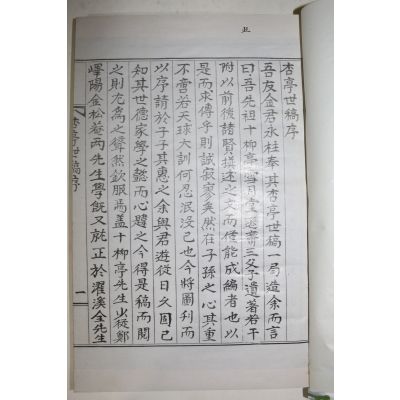 五
杏亭世稿序
吾友金君永柱奉其杏亭世稿一局造余而言
曰吾先祖十柳亭雪月堂三父子遺著若干
附以前後諸賢撰述之文而僅能成編者也以
是而求傳乎則誠寂寥矣然在子孫之心其重
不啻若天球大訓何忍泯沒已也今將圖刊而
以序請於子子其惠之余與君遊從日久固已
知其世德家學之懿而心艷之今得是稿而閱
之則尤為之聳然欽服焉盖十柳亭先生少從鄭
嶧陽金松菴兩先生學旣又就正於濯溪全先生
杏亭世稿序
一